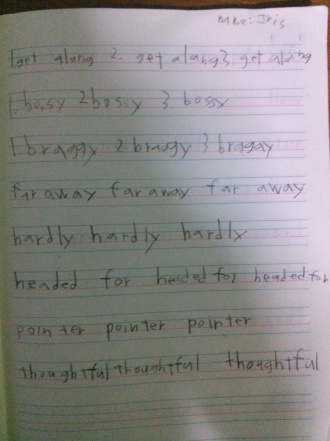 name: Iris
1 get alang 2. get alang 3. get alang
1. bossy 2 bossy 3. bossy
1 braggy 2 braggy 3 braggy
far away far away far away
hardly hardly hardly
headed for headed for headed for
pointer pointer pointer
thoughtful thoughtful thoughtful